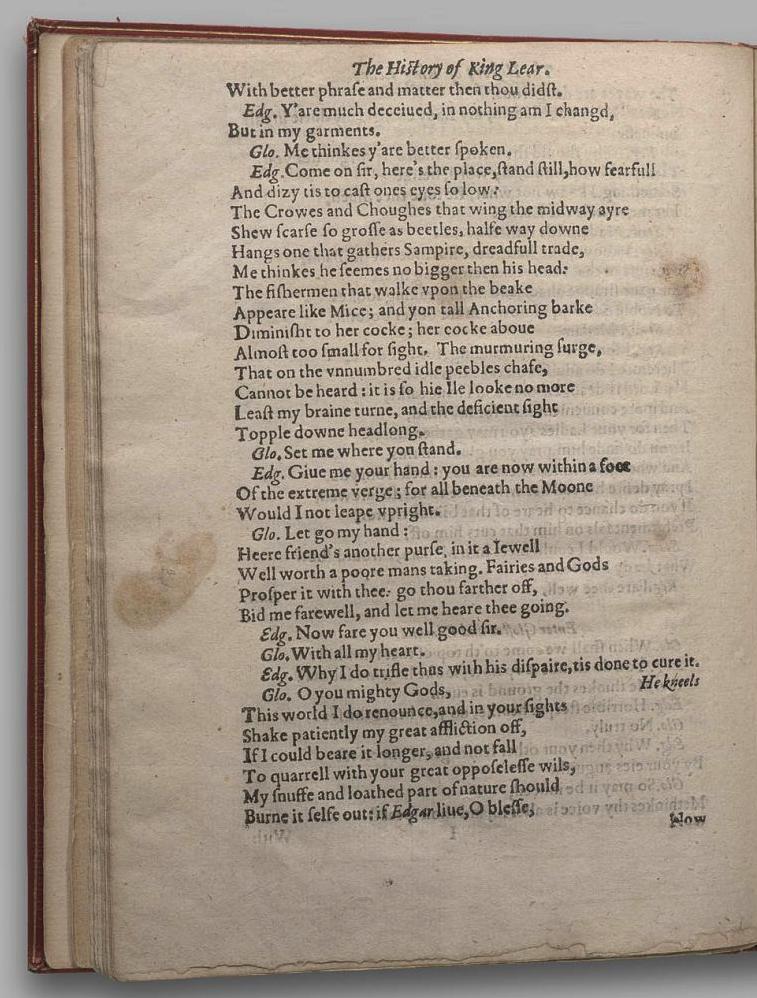 The Hiſtory of King Lear.
With better phraſe and matter then thou didſt.
Edg. Y'are much deceiued, in nothing am I changd,
But in my garments.
Glo. Me thinkes y'are better ſpoken.
Edg. Come on ſir, here's the place, ſtand ſtill, how fearfull
And dizy tis to caſt ones eyes ſo low:
The Crowes and Choughes that wing the midway ayre
Shew ſcarſe ſo groſſe as beetles, halfe way downe
Hangs one that gathers Sampire, dreadfull trade,
Me thinkes he ſeemes no bigger then his head:
The fiſhermen that walke vpon the beake
Appeare like Mice; and yon tall Anchoring barke
Diminiſht to her cocke; her cocke aboue
Almoſt too ſmall for ſight. The murmuring ſurge,
That on the vnnumbred idle peebles chafe,
Cannot be heard : it is ſo hie Ile looke no more
Leaſt my braine turne, and the deficient ſight
Topple downe headlong.
Glo. Set me where you ſtand.
Edg. Giue me your hand : you are now within a foot
Of the extreme verge; for all beneath the Moone
Would I not leape vpright.
Glo. Let go my hand :
Heere friend's another purſe, in it a Iewell
Well worth a poore mans taking. Fairies and Gods
Proſper it with thee: go thou farther off,
Bid me farewell, and let me heare thee going.
Edg. Now fare you well good ſir.
Glo. With all my heart.
Edg. Why I do trifle thus with his diſpaire, tis done to cure it.
Glo. O you mighty Gods, He kneels
This world I do renounce, and in your ſights
Shake patiently my great affliction off,
If I could beare it longer, and not fall
To quarrell with your great oppoſeleſſe wils,
My ſnuffe and loathed part of nature ſhould
Burne it ſelfe out: if Edgar liue, O bleſſe,
Now